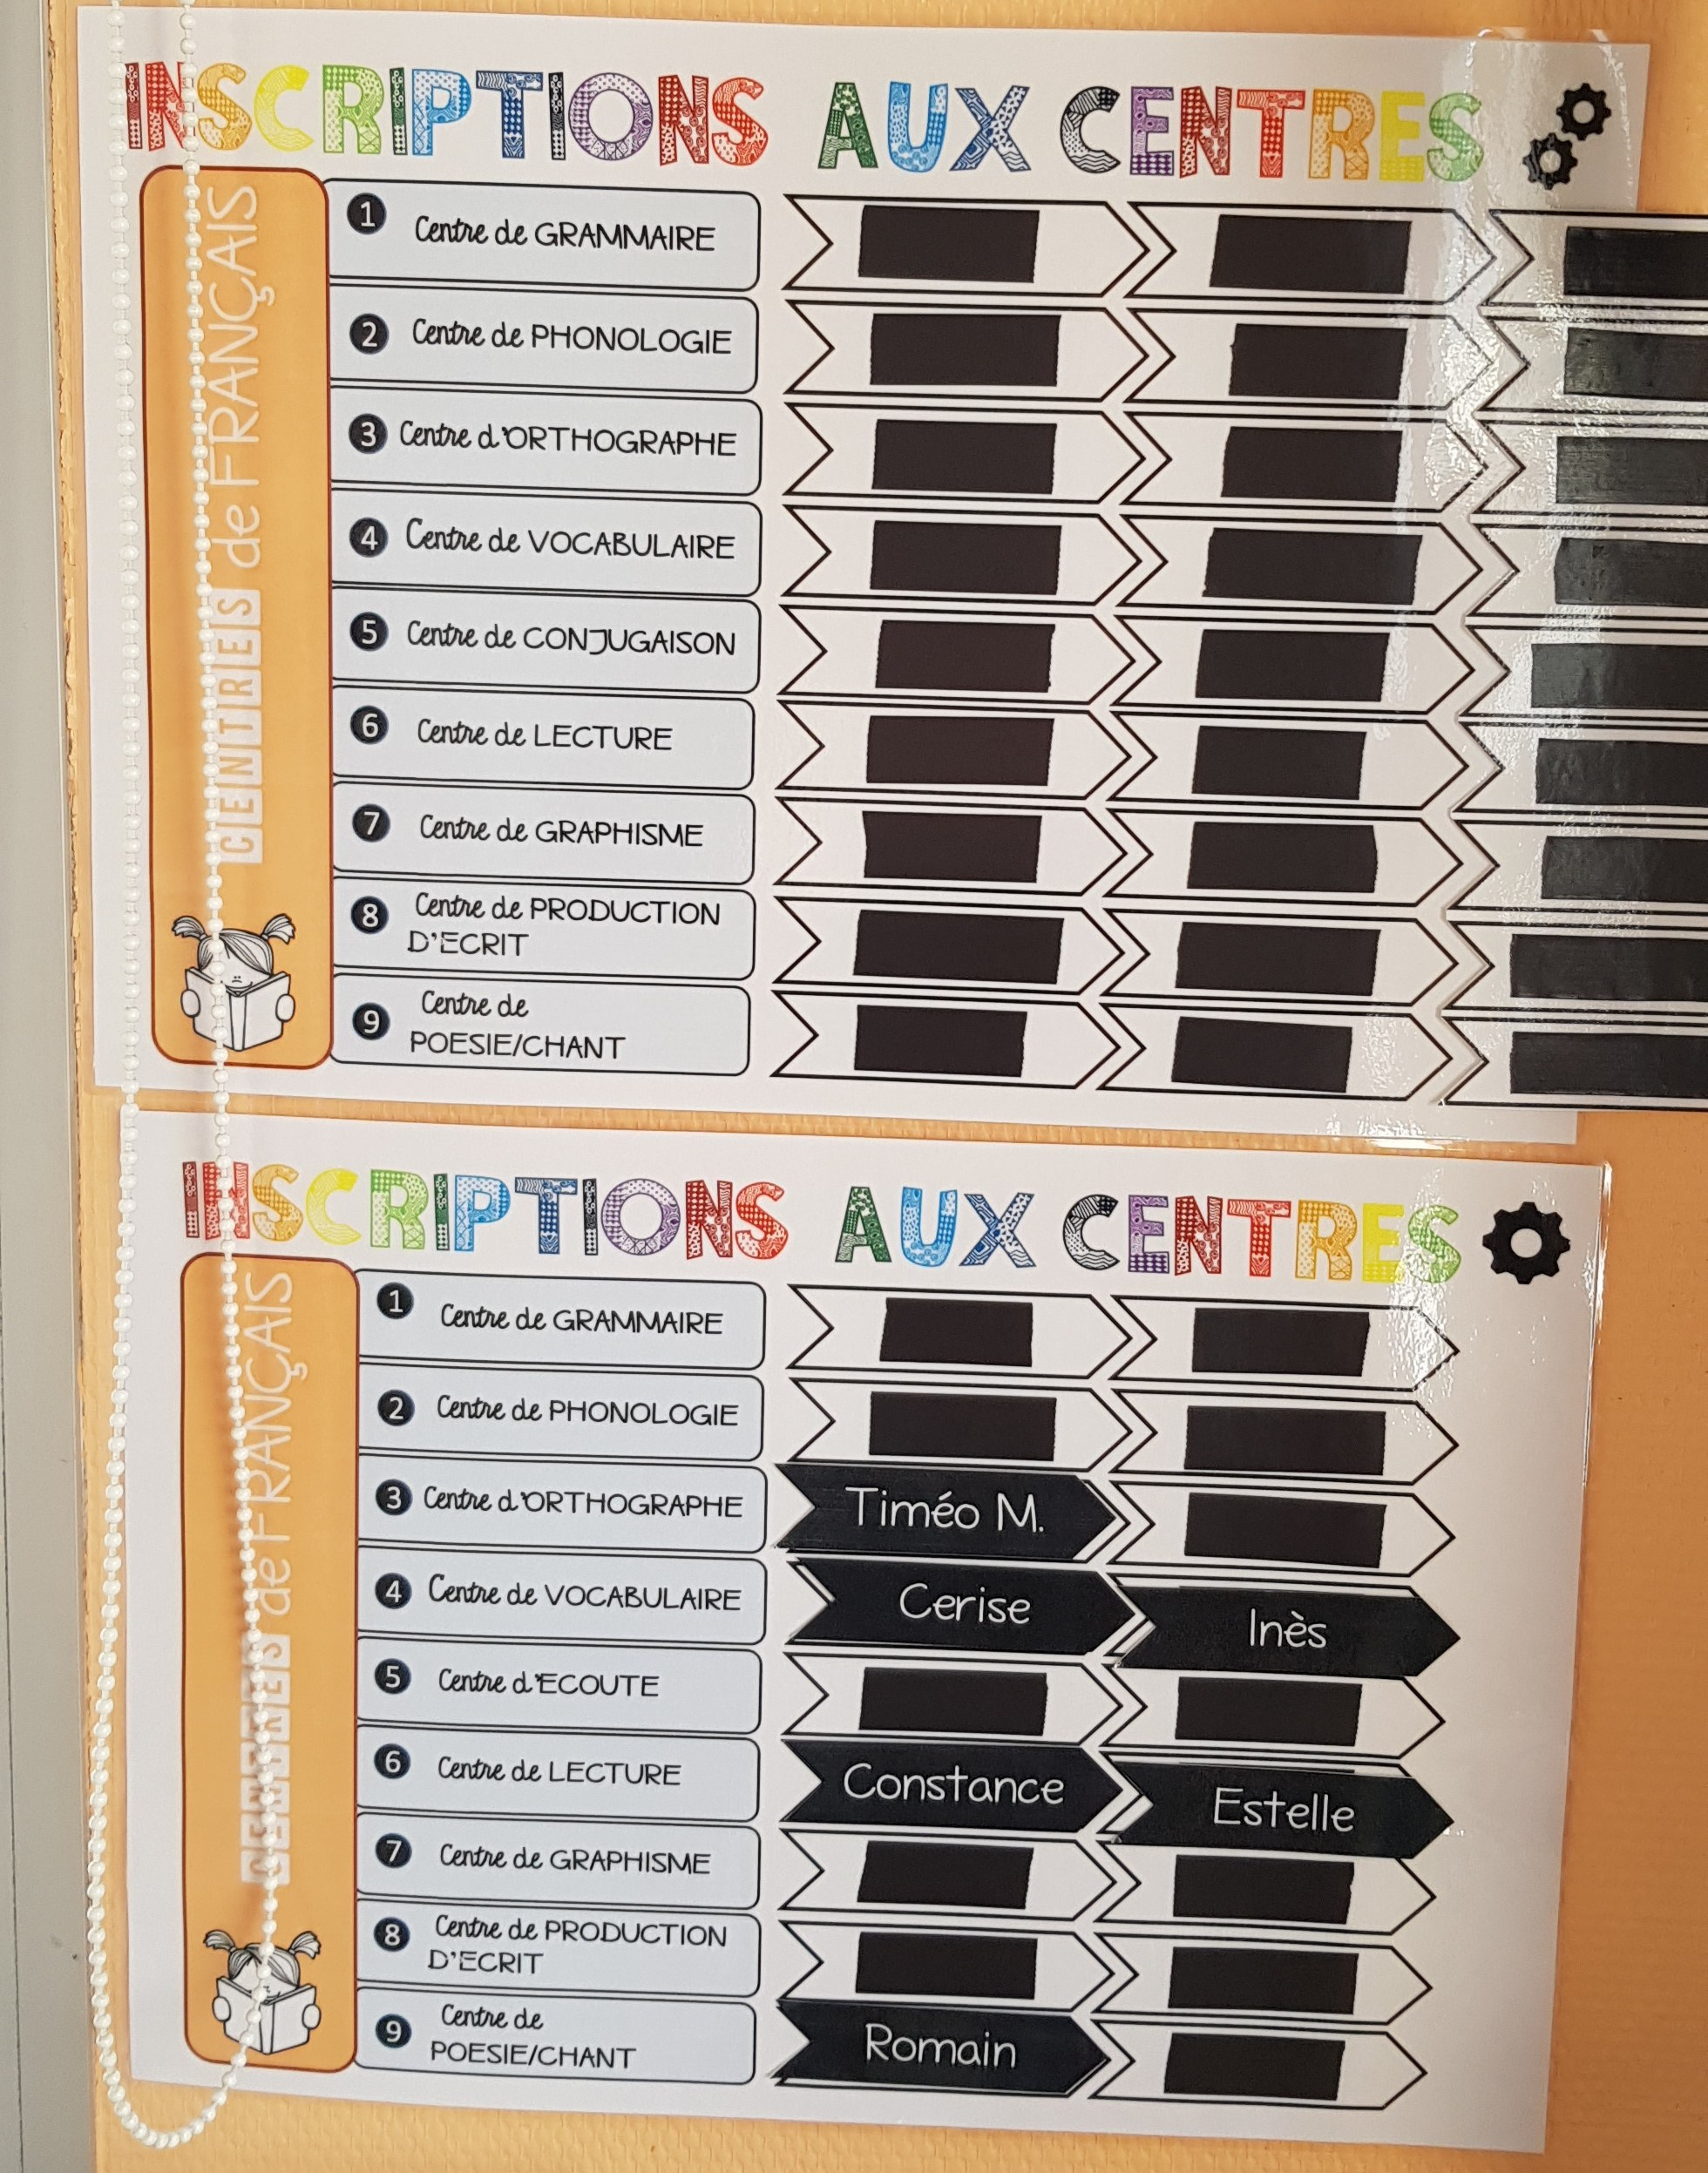 INSCRIPTIONS AUX CENTRES
CENTRES de FRANÇAIS
1 Centre de GRAMMAIRE
2 Centre de PHONOLOGIE
3 Centre d'ORTHOGRAPHE
4 Centre de VOCABULAIRE
5 Centre de CONJUGAISON
6 Centre de LECTURE
7 Centre de GRAPHISME
8 Centre de PRODUCTION
D'ECRIT
9 Centre de
POESIE/CHANT
INSCRIPTIONS AUX CENTRES
CENTRES de FRANÇAIS
1 Centre de GRAMMAIRE
2 Centre de PHONOLOGIE
3 Centre d'ORTHOGRAPHE Timéo M.
4 Centre de VOCABULAIRE Cerise Inès
5 Centre d'ECOUTE
6 Centre de LECTURE Constance Estelle
7 Centre de GRAPHISME
8 Centre de PRODUCTION
D'ECRIT
9 Centre de
POESIE/CHANT Romain